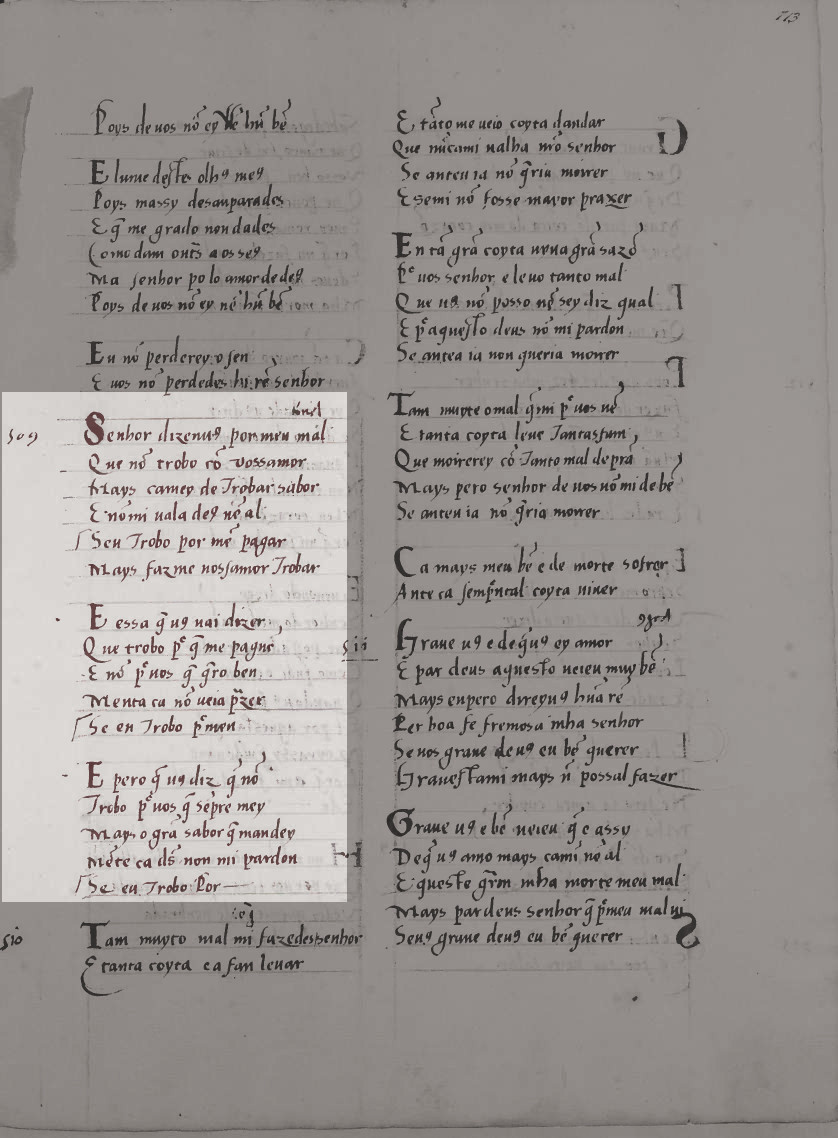 713
Poys de uos nõ ey hũ bẽ
E lume destes olhꝯ meꝯ
Poys massy desanparades
E q̃ me grado non dades
Como dam outs̃ aos seꝯ
Ma senhor polo amor de deꝯ
Poys de uos nõ ey nẽ hũ bẽ
Eu nõ perderey o sen
E uos nõ perdedes hi rẽ senhor
509
Senhor dizenuꝯ por meu mal
Que nõ trobo cõ vossamor
Mays camey de Trobar sabor
E nõ mi uala deꝯ nẽ al
Seu Trobo por mẽ pagar
Mays faz me uossamor Trobar
E essa q̃ uꝯ uai dizer
Que trobo p̃ q̃ me pague
E nõ p̃ uos q̃ q̃ro ben
Menta ca nõ ueia p̃zer
Se en Trobo p̃ men
E pero q̃ uꝯ diz q̃ nõ
Trobo p̃ uos q̃ sẽpre mey
Mays o grã sabor q̃ mandey
Mẽte ca ds̃ non mi pardon
Se eu Trobo Por
510
Tam muyto mal mi fazedes senhor
E tanta coyta e afan leuar
E tãto me ueio coyta dandar
Que nũcami ualha nr̃o senhor
Se anteu ia nõ q̃ria moirer
E semi nõ fosse mayor praxer
En tã grã coyta uyuagrã sazõ
P̃ uos senhor e leuo tanto mal
Que uꝯ nõ posso nẽ sey diz qual
E p̃ aquesto deus nõ mi pardon
Se antea ia non queria moirer
Tam muyte o mal q̃mi p̃ uos uẽ
E tanta coyta leue Tantasfam
Que moirerey cõ Tanto mal de prã
Mays pero senhor de uos nõ mi de bẽ
Se anteu ia nõ q̃ria moirer
Ca mays meu bẽ e de morte sofrer
Ante ca semp̃ntal coyta uiuer
511
Graue uꝯ e deq̃uꝯ ey amor
E par deus aquesto ueieu muy bẽ
Mays enpero direyuꝯ hũa rẽ
Per boa fe fremosa mha senhor
Seuos graue deuꝯ eu bẽ querer
Grauestami mays ñ possal fazer
Graue uꝯ e bẽ ueieu q̃ e assy
Deq̃ uꝯ amo mays cami nẽ al
E queste grãm mha morte meu mal
Mays par deus senhor q̃ p̃meu mal ui
Seuꝯ graue deuꝯ eu bẽ querer